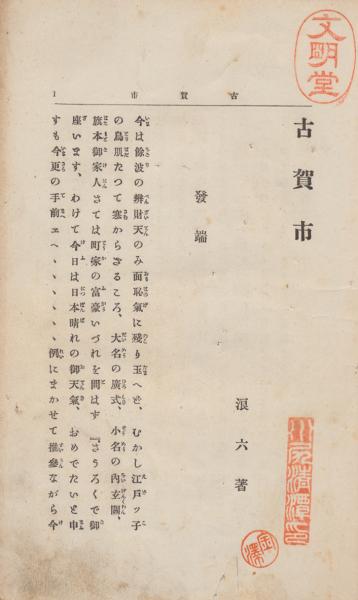 文明堂
古賀市
1
古賀市
發端
浪六著
今は餘波の辨財天のみ面恥氣に殘り玉へど、むかし江戸ッ子
の鳥肌たつて寒からざるころ、大名の廣式、小名の内玄關、
旗本御家人さては町家の富豪いづれを問はず『さうろくで御
座います、わけて今日は日本晴れの御天氣、おめでたいと申
すも今更の手前ヱヘヽヽヽヽヽ、例にまかせて推參ながら今